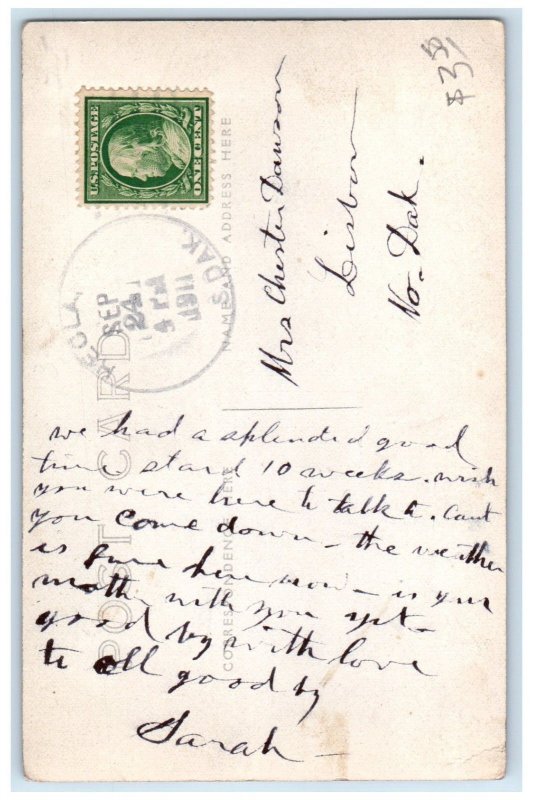 $3.50
U.S. POSTAGE
ONE CENT
KEOLA,
S. DAK.
SEP
24
4 PM
1911
POST CARD
NAME AND ADDRESS HERE
CORRESPONDENCE HERE
Mrs Chester Dawson
Lisbon
No-Dak.
we had a splended good
time staid 10 weeks. wish
you were here to talk to. Cant
you come down - the weather
is fine here now - is your
moth with you yet -
good by with love
to all good by
Sarah -